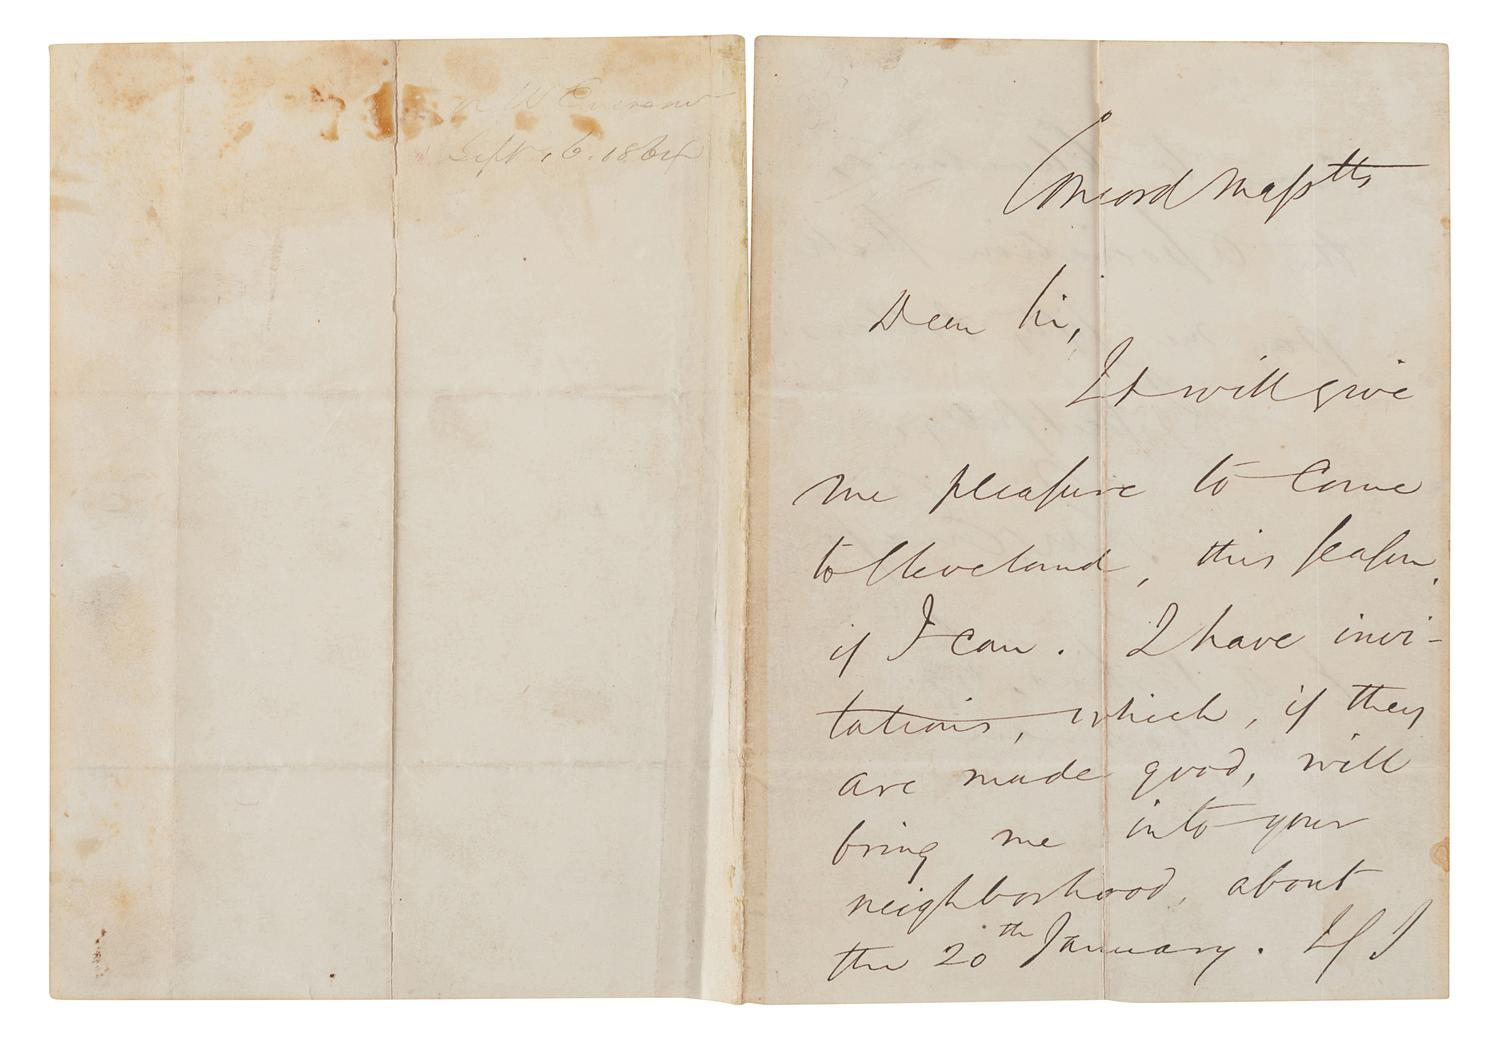 R W Emerson
Sept 6. 1864
Concord Masstts
Dear Sir,
It will give
me pleasure to come
to Cleveland, this season,
if I can. I have invi-
tations, which, if they
are made good, will
bring me into your
neighborhood, about
the 20th January. If I